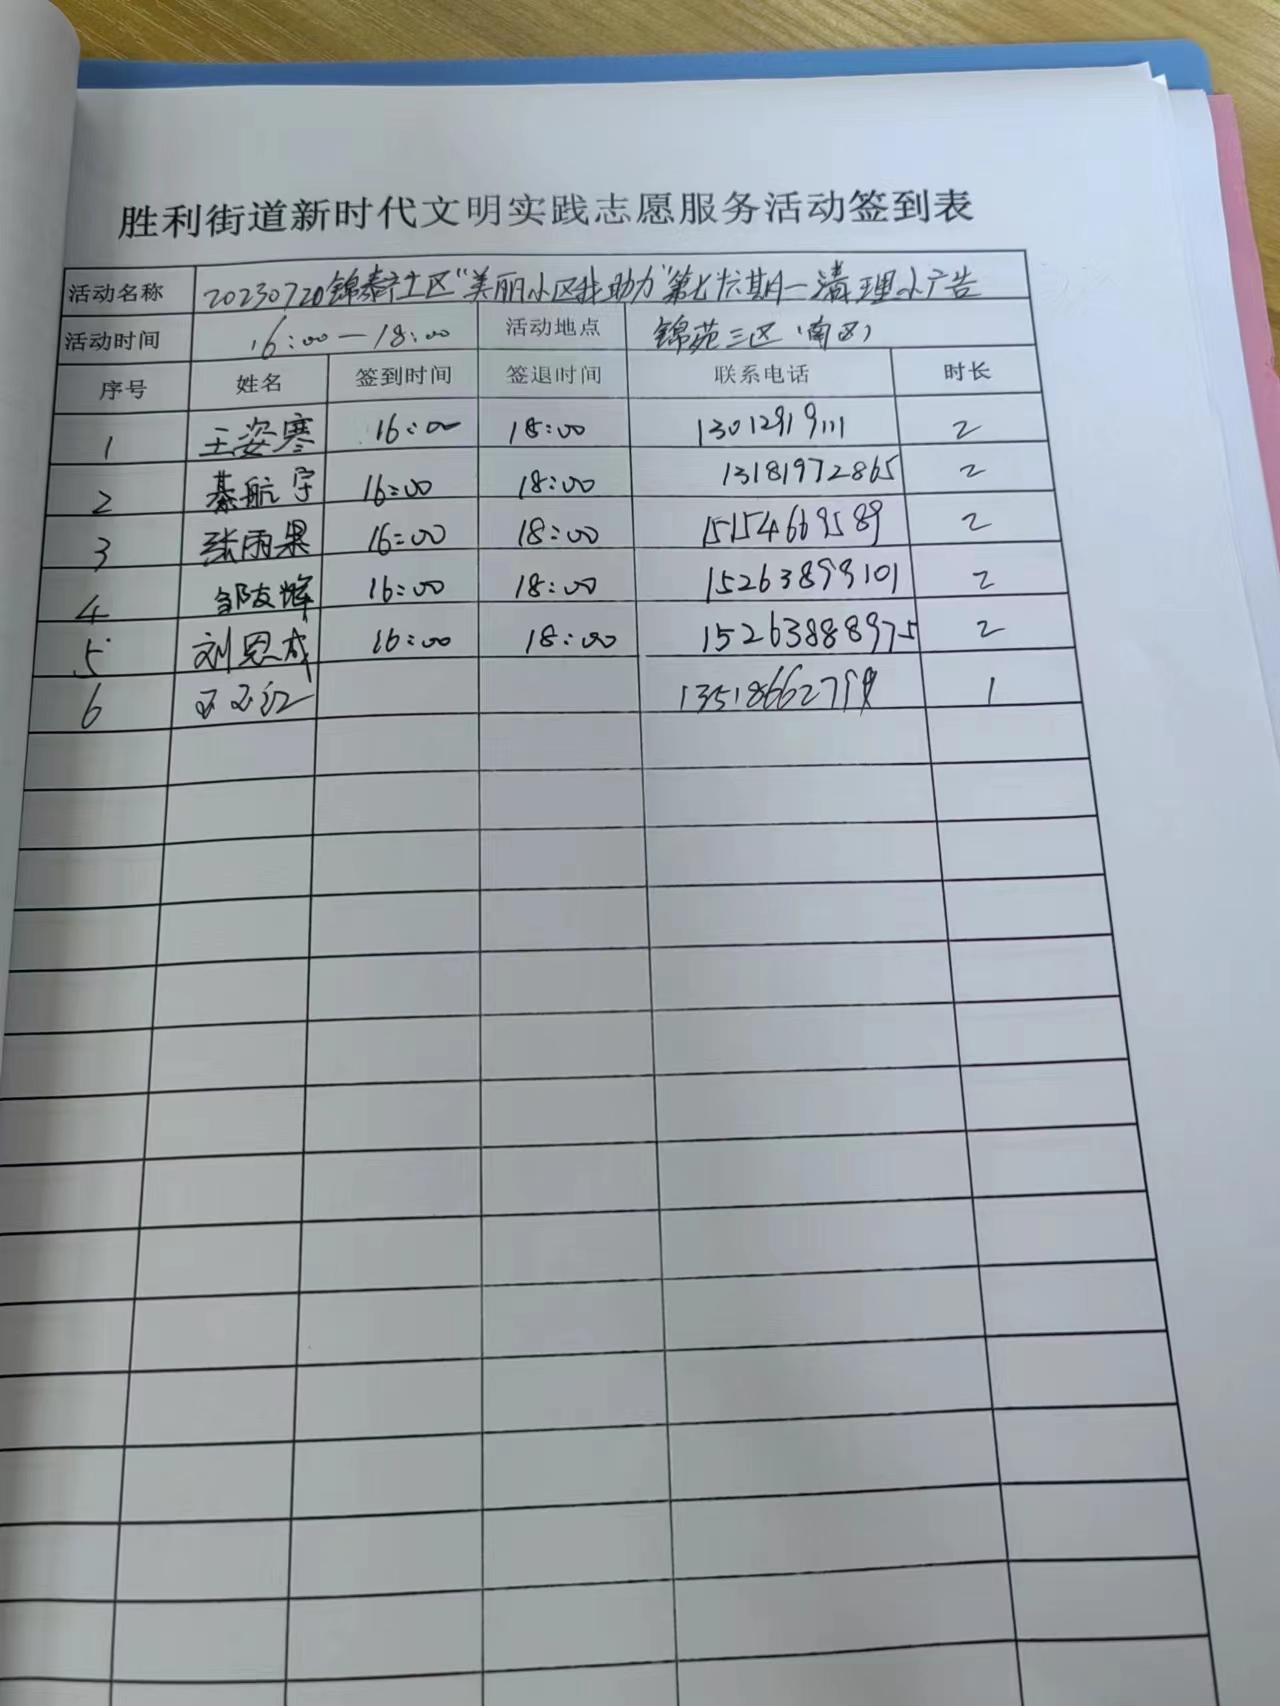 胜利街道新时代文明实践志愿服务活动签到表
活动名称 20230720锦泰社区"美丽小区我助力"第七六期—清理小广告
活动时间 16:00—18:00 活动地点 锦苑三区(南区)
序号 姓名 签到时间 签退时间 联系电话 时长
1 王姿寒 16:00 18:00 13012919111 2
2 綦航宇 16:00 18:00 13181972865 2
3 张雨果 16:00 18:00 15154669589 2
4 邹友辉 16:00 18:00 15263899101 2
5 刘恩成 16:00 18:00 15263888975 2
6 1